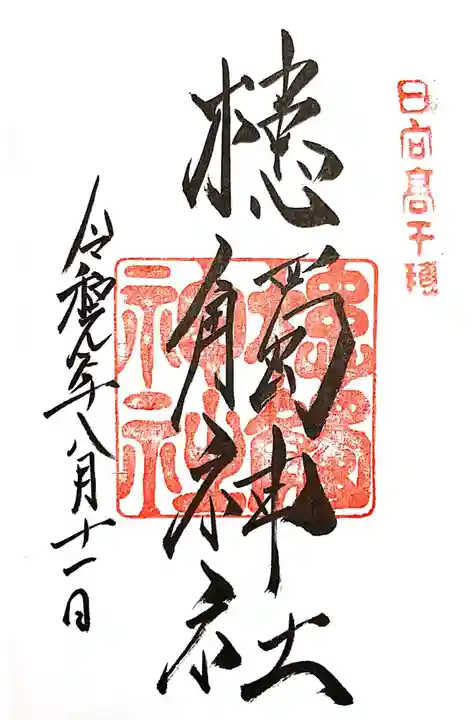 日向高千穂
槵觸神社
槵觸
神社
令和元年八月十一日